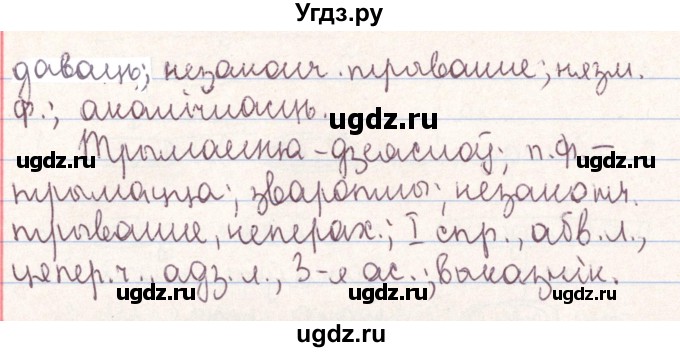 Угдз.ру
даваць; незаконч. трыванне; нязм.
ф.; акалічнасць.
Трымаецца - дзеяслоў; п.ф. -
трымацца; зваротны; незаконч.
трыванне, неперах.; I спр., абв.л.,
цяпер.ч., адз.л., 3-я ас.; выказнік.
ugdz.ru
ugdz.ru
ugdz.ru
ugdz.ru
ugdz.ru
ugdz.ru
ugdz.ru
ugdz.ru
ugdz.ru